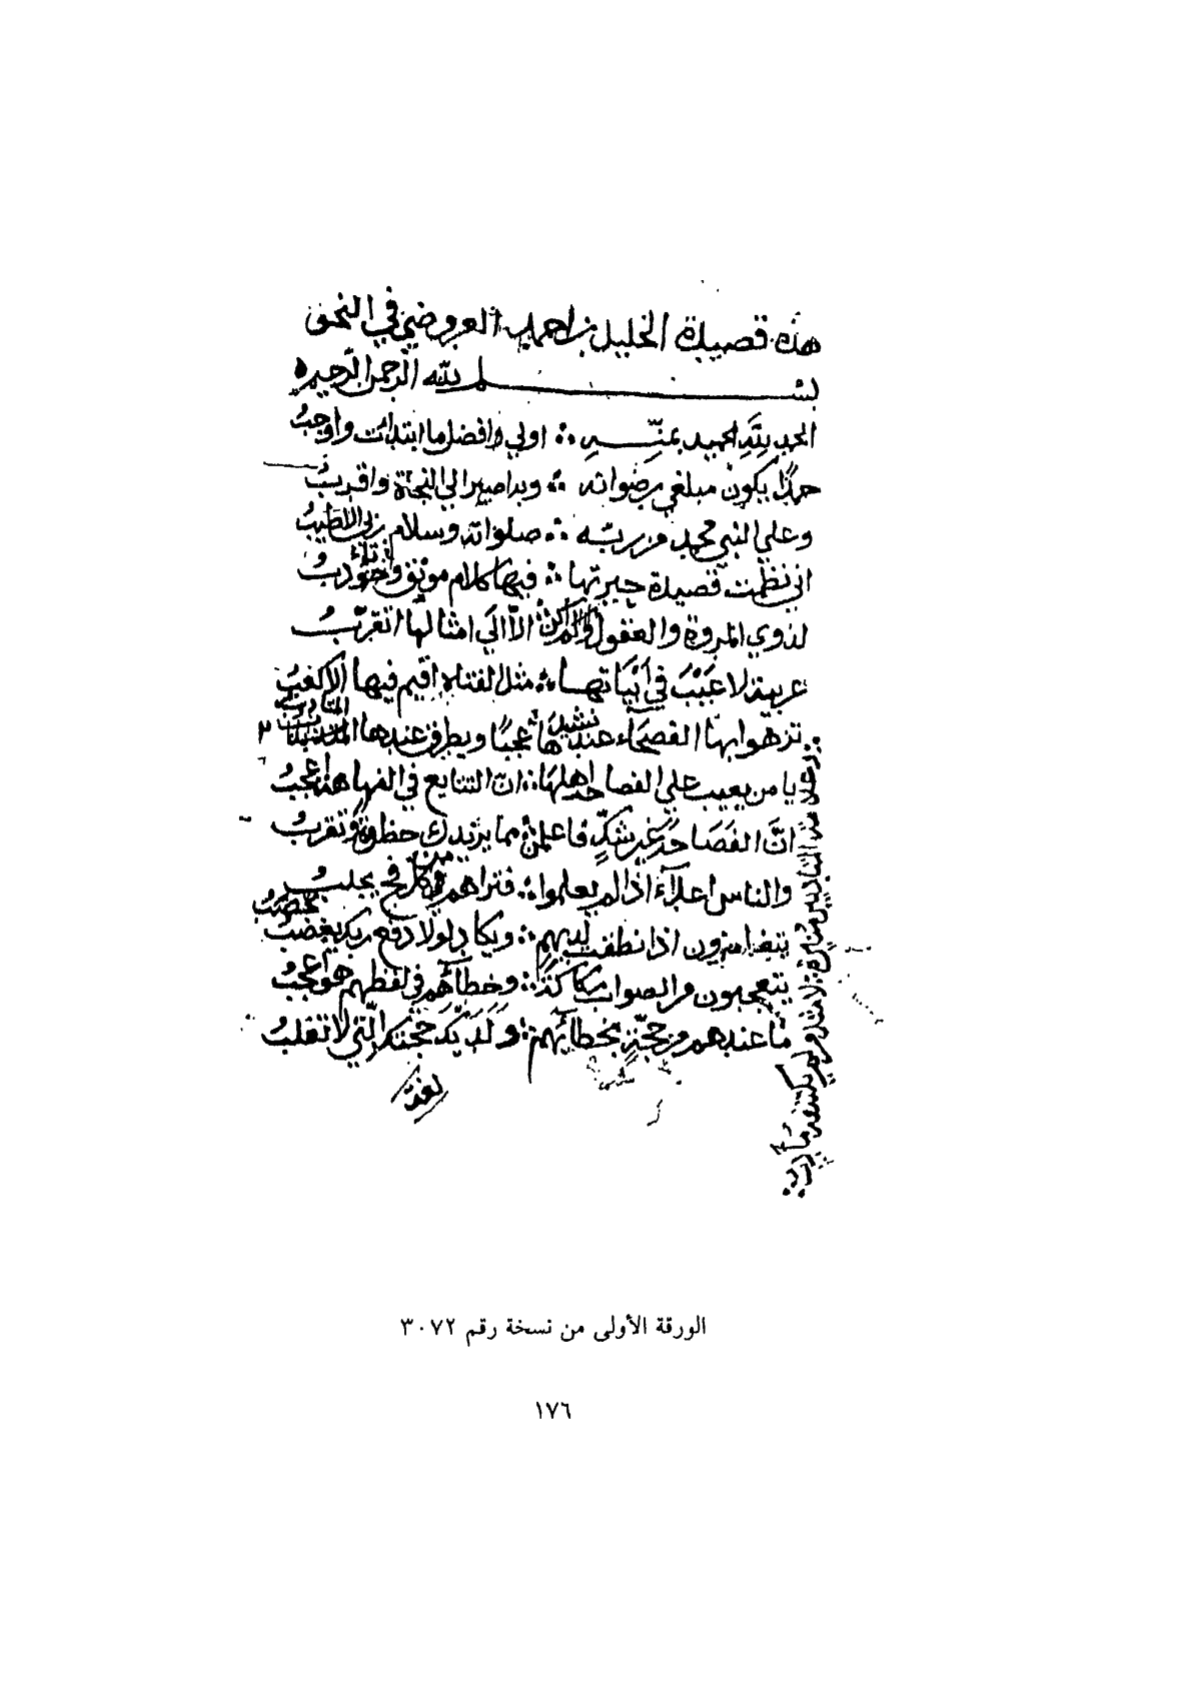 هذه قصيدة الخليل بن احمد العروضي في النحو
بسم الله الرحمن الرحيم
الحمد لله الحميد بمنّه ∴ اولي وافضل ما ابتدات واوجبُ
حمدًا يكون مبلغي رضوانه ∴ وبه اصير الي النجاة واقربُ
وعلي النبي محمد من ربّه ∴ صلواته وسلام ربي الاطيبُ
اني نظمت قصيدة حبرتها ∴ فيها كلام مونق وتأدّبُ
لذوي المروة والعقول ولم اكن ∴ الّا الي امثالها اتقرّبُ
عربية لا عَيْبَ في أبْيَاتها ∴ مثل القناه اقيم فيها الاكعبُ
تزهوا بها الفصحَاء عند نشيدها عجبًا ويطرق عندها المتأدبُ
يا من يعيب علي الفصاحة اهلها ∴ انّ التتايع في الفهاهة اعجبُ
انَّ الفَصَاحةَ غير شكٍّ فاعلمن ∴ مما يزيدك حظوة وتقربُ
والناس اعدآءٌ اذا لم يعلموا ∴ فتراهم من كل فج يجلبُ
يتغامزون اذا نطقت لديهم ∴ ويكاد لولا دفع ربك يحصبُ
يتعجبون من الصواب ∴ وخطآؤهم في لفظهم هو اعجبُ
ما عندهم من حجّةٍ بخطائهم ∴ ولديك حجتك الّتي لا تغلبُ
الورقة الأولى من نسخة رقم ٣٠٧٢
١٧٦